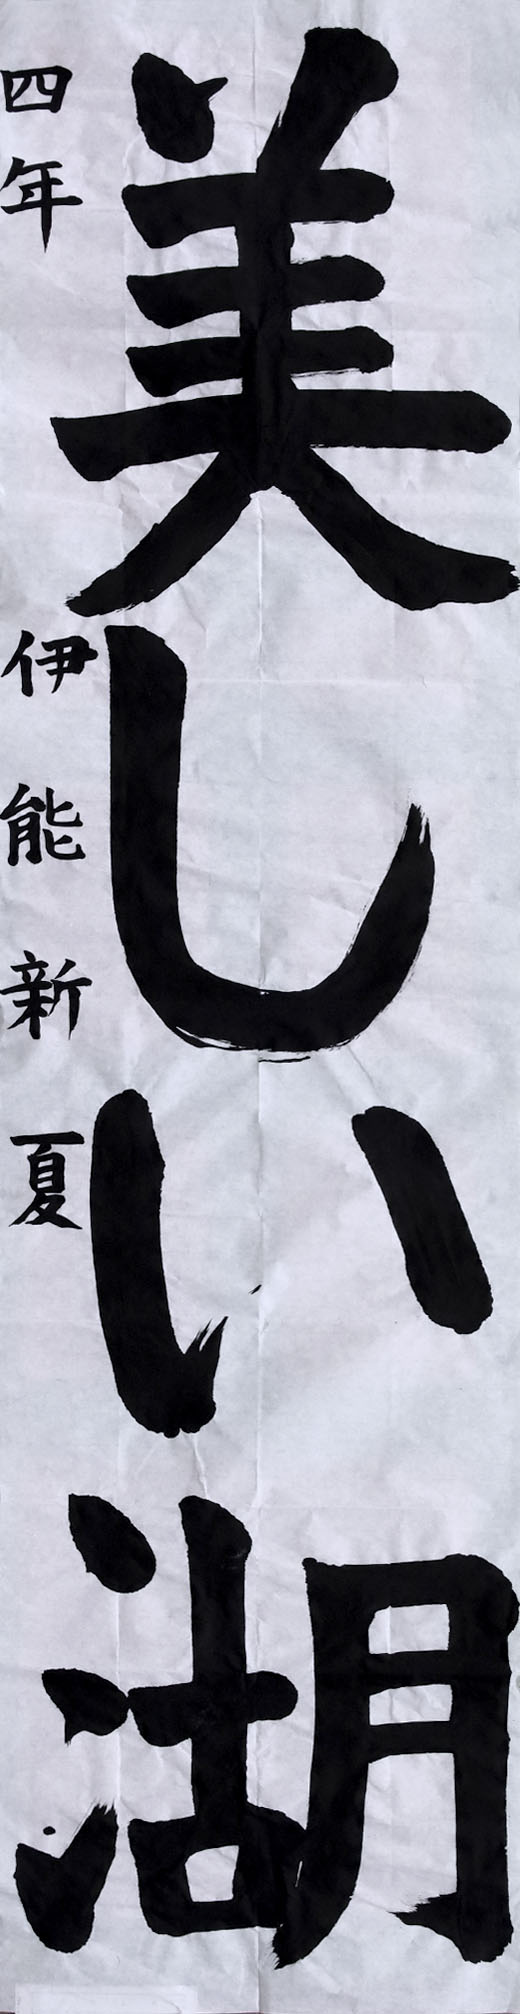 美しい湖
四年 伊能新夏